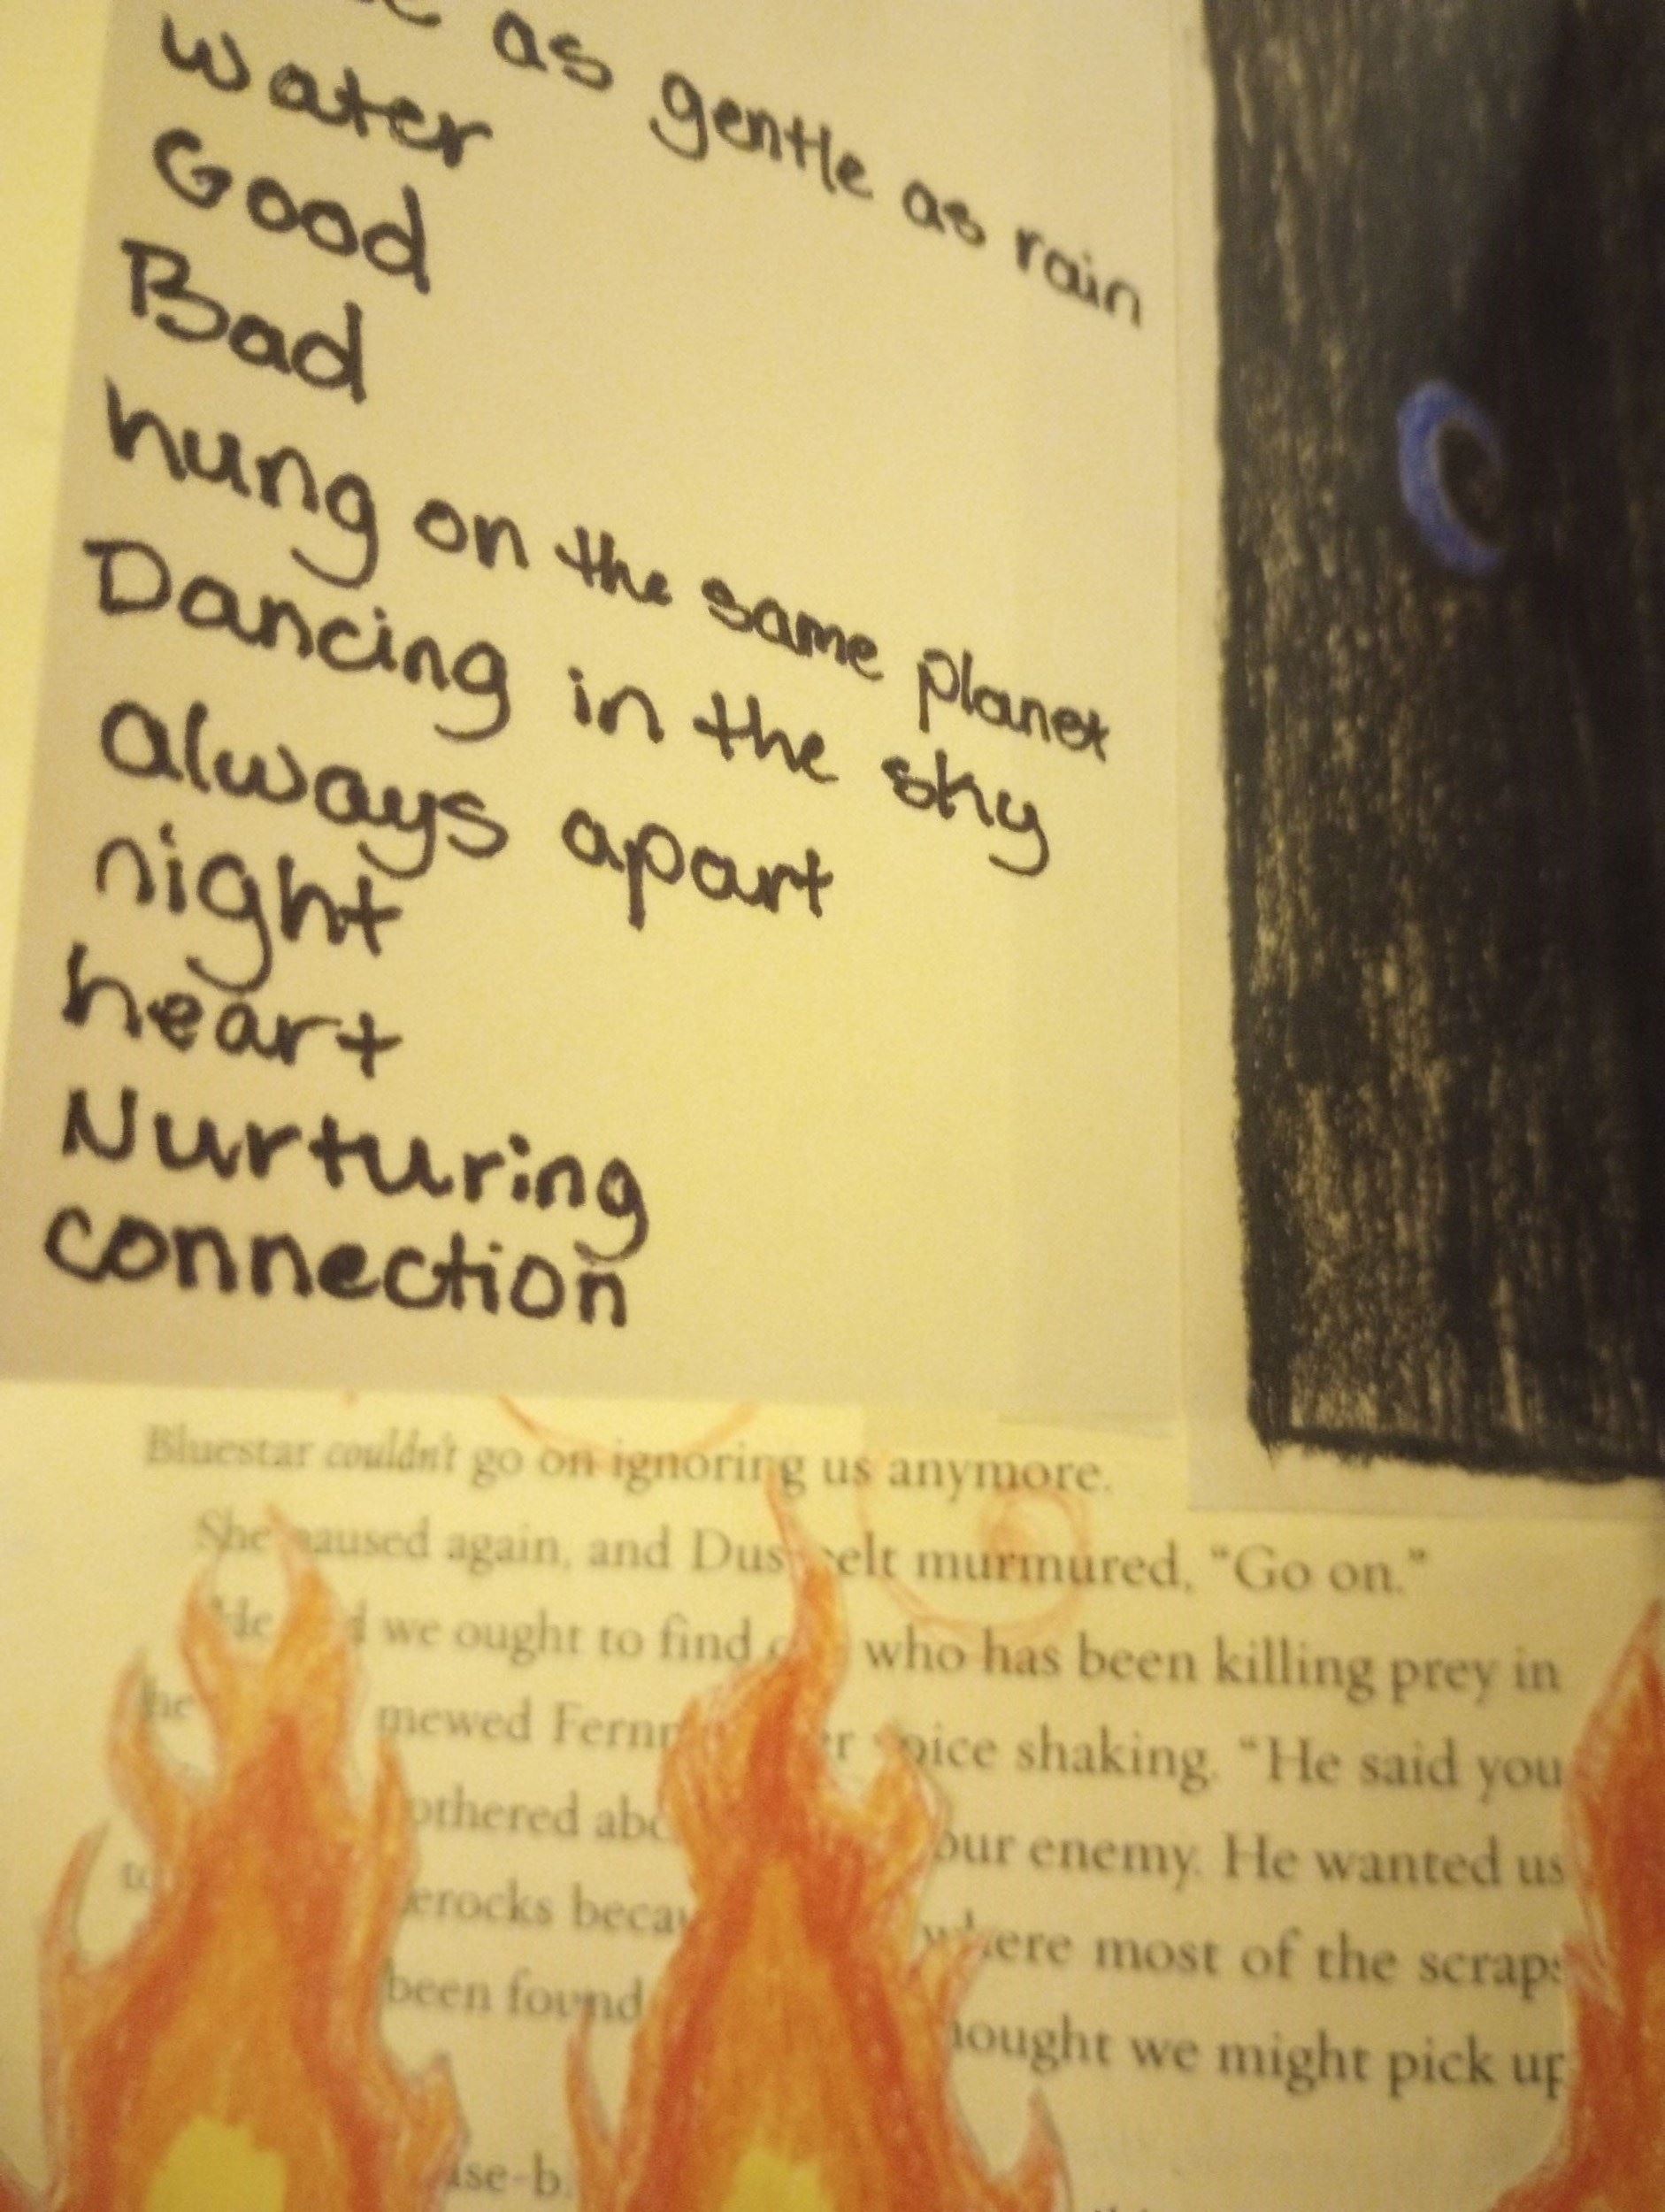 as gentle as rain
water
Good
Bad
hung on the same planet
Dancing in the sky
always apart
night
heart
Nurturing
connection
Bluestar couldn't go on ignoring us anymore.
She paused again, and murmured, "Go on."
we ought to find who has been killing prey in
mewed shaking. "He said you
our enemy. He wanted us
where most of the scraps
been found
we might pick up